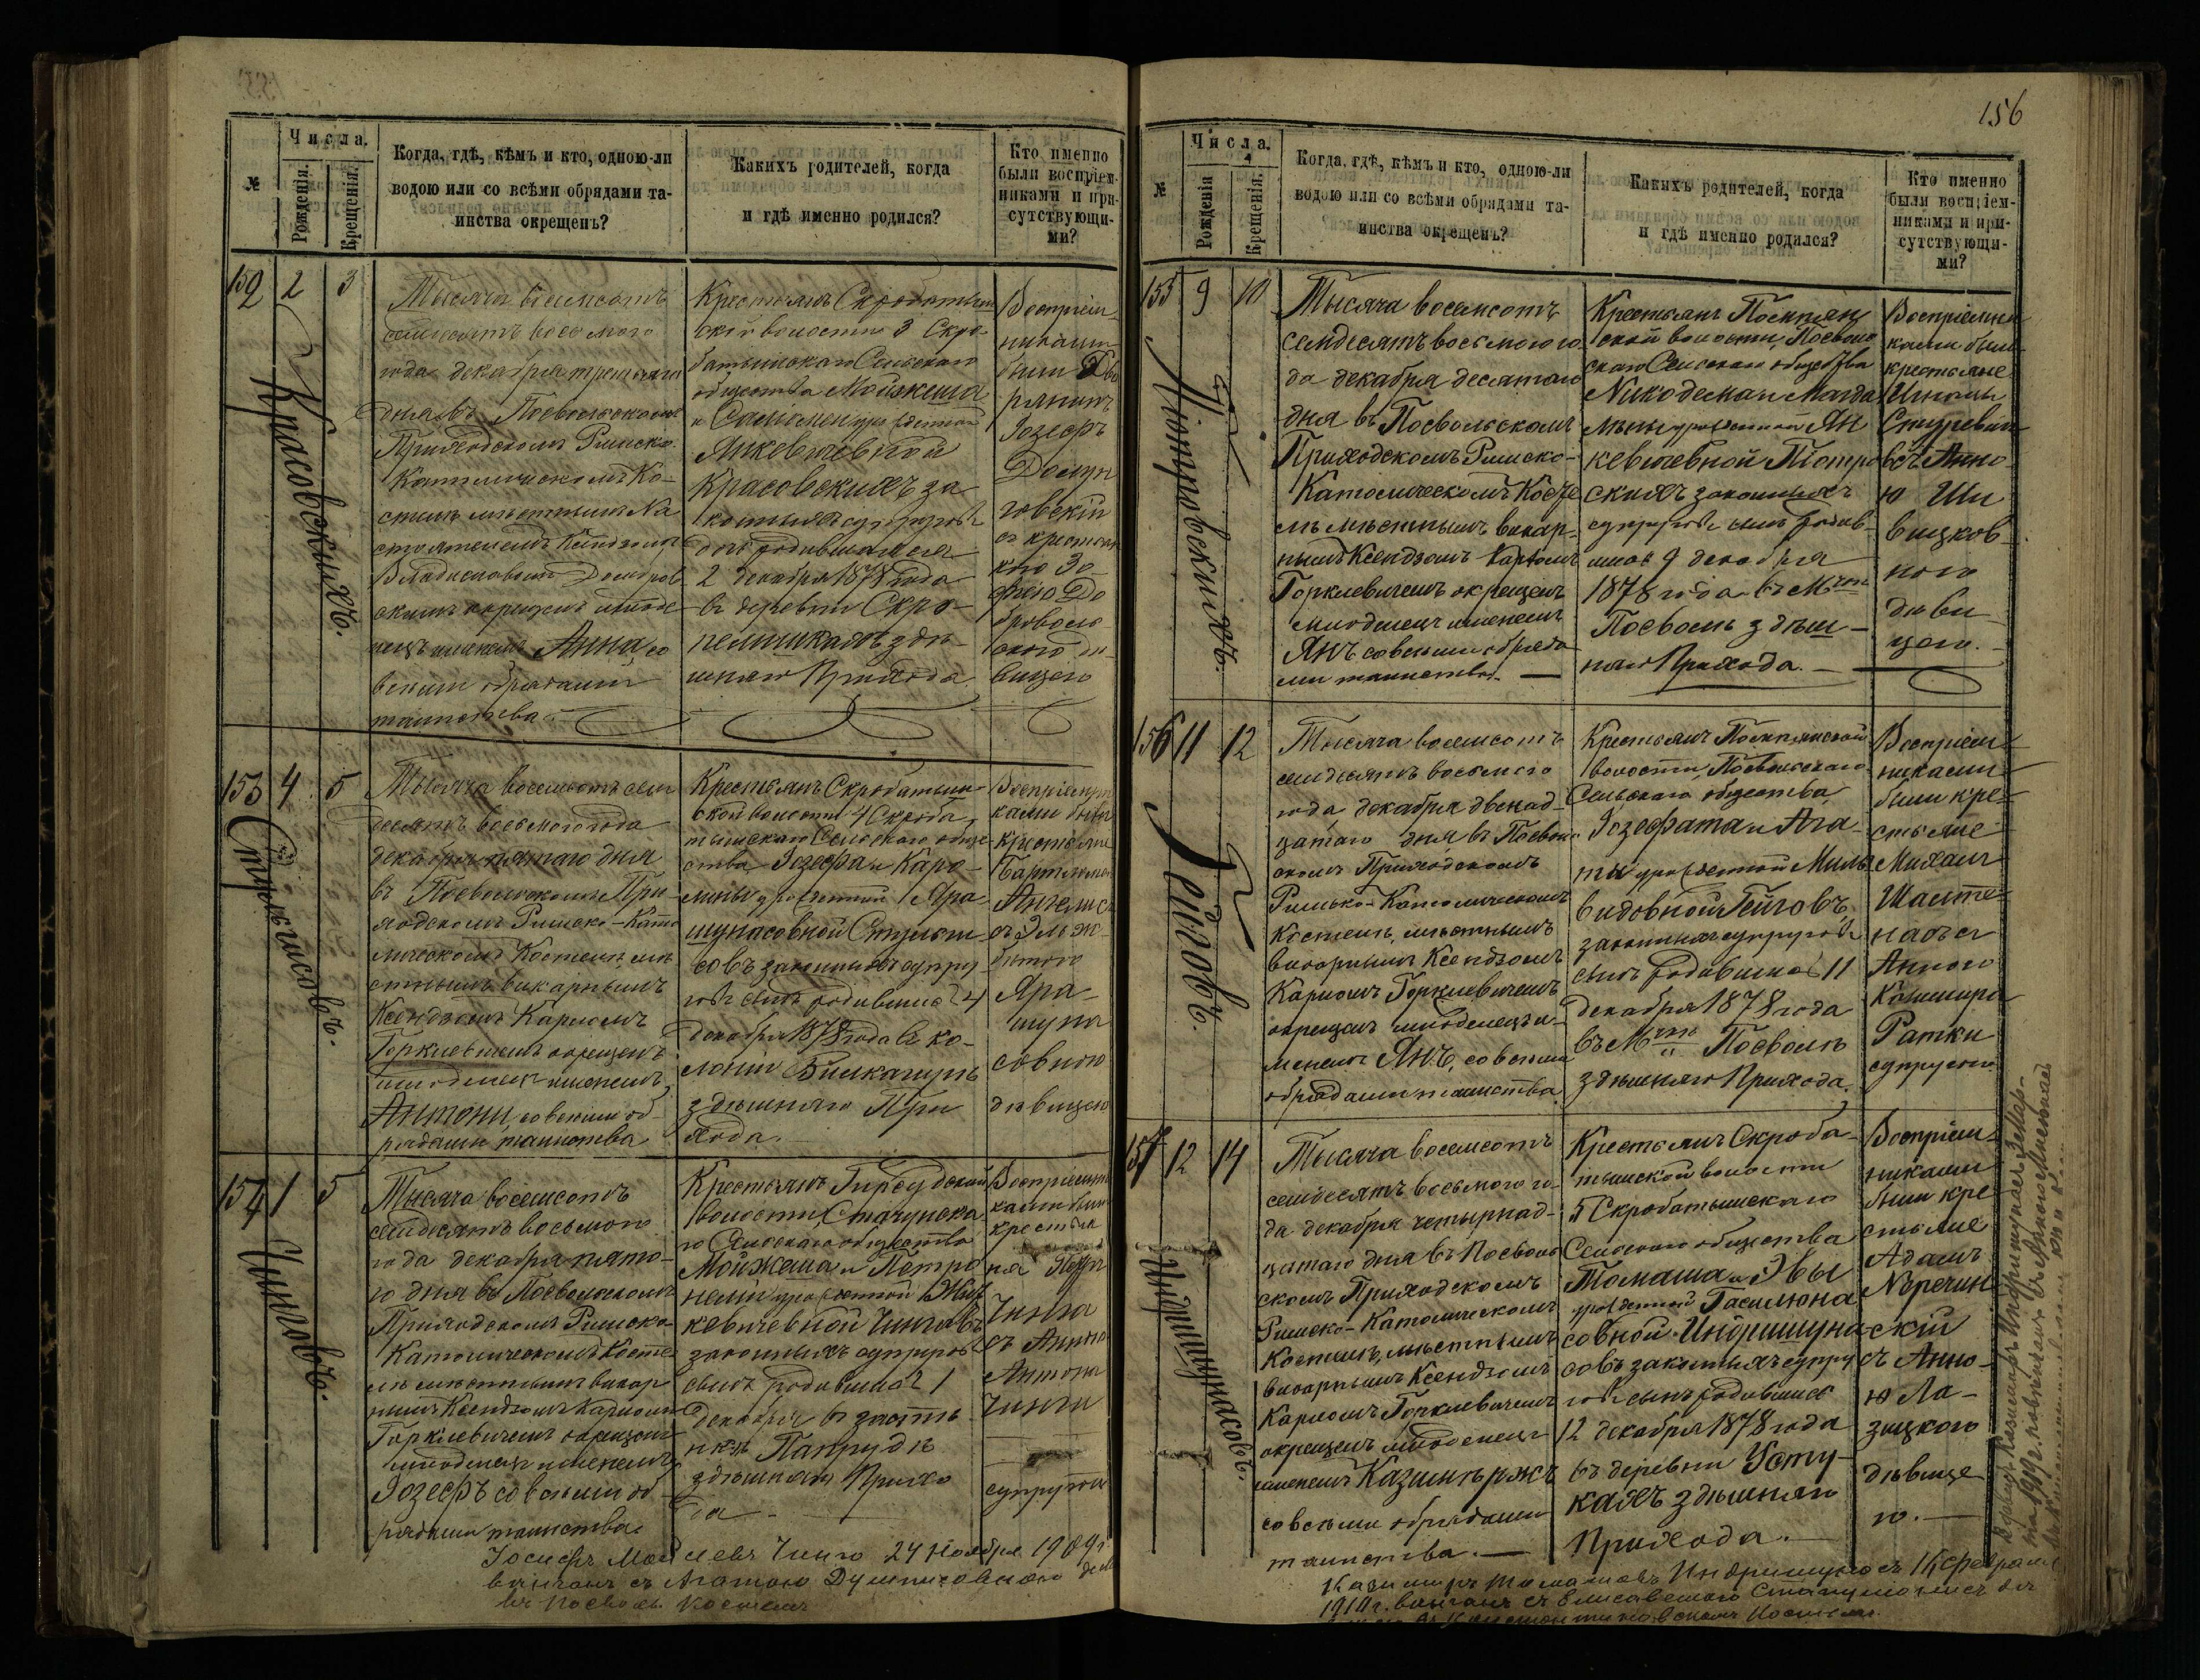 156
№
Числа.
Рожденія.
Крещенія.
Когда, гдѣ, кѣмъ и кто, одною-ли
водою или со всѣми обрядами та-
инства окрещенъ?
Какихъ родителей, когда
и гдѣ именно родился?
Кто именно
были воспріем-
никами и при-
сутствующи-
ми?
152
2
3
Красовскихъ.
Тысяча восемсотъ
семдесятъ восьмого
года декабря третьяго
дня въ Посвольскомъ
Приходскомъ Римско-
Католическомъ Ко-
стелѣ мѣстнымъ На
стоятелемъ Ксендзомъ
Владиславомъ
окрещенъ младе-
нецъ именемъ Анна, со
всѣми обрядами
таинства.
Крестьянъ Скробатыш
ской волости 3 Скро-
батышскаго Сельскаго
общества Мойжеша
и Саломеи урожденной
Янкевичевной
Красовскихъ за
конныхъ супруговъ
дочь родившаяся
2 декабря 1878 года
въ деревни Скре-
пелишкахъ здѣ-
шняго Прихода
Воспріем-
никами
были Дво
рянинъ
Іозефъ
говскій
съ крестьян
кою Зо
фіею До
бровольс
кою дѣ-
вицею
153
4
5
Стульгисовъ.
Тысяча восемсотъ сем
десятъ восьмого года
декабря пятаго дня
въ Посвольскомъ При-
ходскомъ Римско-Като
лическомъ Костелѣ, мѣ
стнымъ викарнымъ
Ксендзомъ Карломъ
Горкевичемъ окрещенъ
младенецъ именемъ
Антони, со всѣми об-
рядами таинства
Крестьянъ Скробатыш-
ской волости 4 Скроба
тышскаго Сельскаго обще
ства Іозефа и Каро-
лины урожденной Яра
шунасовной Стульги
совъ законныхъ супру
говъ сынъ родившійся 4
декабря 1878 года въ ко-
лоніи
здѣшняго При
хода.
Воспріемни
ками были
крестьяне
съ Эльж-
бетою
Яра-
шуна
совною
дѣвицею
154
1
5
Чинговъ.
Тысяча восемсотъ
семдесятъ восьмого
года декабря пята-
го дня въ Посвольскомъ
Приходскомъ Римско-
Католическомъ Косте
лѣ мѣстнымъ викар
нымъ Ксендзомъ Карломъ
Горкевичемъ окрещенъ
младенецъ именемъ
Іозефъ со всѣми об-
рядами таинства
Крестьянъ Гирсудской
волости, Стачунска
го Сельскаго общества
Мойжеша и Петро
нели урожденной
кевичевной Чинговъ
законныхъ супруговъ
сынъ родившійся 1
декабря въ застѣ-
нкѣ Папрудѣ
здѣшняго Прихо
да.
Воспріемни
ками были
крестья
не
Чинга
съ Анною
Антона
Чинги
супругою
Іосифъ Мойсеевъ Чинга 24 Ноября 1904 г.
вѣнчанъ съ Агатою
въ Посволь Костелѣ
№
Числа.
Рожденія
Крещенія.
Когда, гдѣ, кѣмъ и кто, одною-ли
водою или со всѣми обрядами та-
инства окрещенъ?
Какихъ родителей, когда
и гдѣ именно родился?
Кто именно
были воспріем-
никами и при-
сутствующи-
ми?
155
9
10
Піотровскихъ.
Тысяча восемсотъ
семдесятъ восьмого го
да декабря десятаго
дня въ Посвольскомъ
Приходскомъ Римско-
Католическомъ Косте
лѣ мѣстнымъ викар-
нымъ Ксендзомъ Карломъ
Горкевичемъ окрещенъ
младенецъ именемъ
Янъ со всѣми обряда
ми таинства.
Крестьянъ
ской волости, Посвольс
скаго Сельскаго общества
Никодема и Магда
лѣны урожденной Ян
кевичевной Піотро
скихъ законныхъ
супруговъ сынъ родив-
шійся 9 декабря
1878 года въ
Посволь здѣш-
няго Прихода.
Воспріемни
ками были
крестьяне
Игнацъ
съ Анно
ю Ши
вицков
ною
дѣви
цею.
156
11
12
Гейговъ.
Тысяча восемсотъ
семдесятъ восьмого
года декабря двенад-
цатаго дня въ Посволь
скомъ Приходскомъ
Римско-Католическомъ
Костелѣ, мѣстнымъ
викарнымъ Ксендзомъ
Карломъ Горкевичемъ
окрещенъ младенецъ и-
менемъ Янъ, со всѣми
обрядами таинства
Крестьянъ
волости, Посвольскаго
Сельскаго общества
Іозефата и Ага-
ты урожденной Миль
видовной Гейговъ,
законныхъ супруговъ
сынъ родившійся 11
декабря 1878 года
въ Посволь
здѣшняго Прихода.
Воспріем
никами
были кре-
стьяне
Михалъ
съ
Анною
Казимира
Ратки
супругою
157
12
14
Индришунасовъ.
Тысяча восемсотъ
семдесятъ восьмого го-
да декабря четырнад-
цатаго дня въ Посволь
скомъ Приходскомъ
Римско-Католическомъ
Костелѣ, мѣстнымъ
викарнымъ Ксендзомъ
Карломъ Горкевичемъ
окрещенъ младенецъ
именемъ Казимѣржъ
со всѣми обрядами
таинства.
Крестьянъ Скроба-
тышской волости
5 Скробатышскаго
Сельскаго общества
Томаша и Эвы
урожденной Гасилюна
совной Индришуна
совъ законныхъ супру
говъ сынъ родившійся
12 декабря 1878 года
въ деревни Усту-
кахъ здѣшняго
Прихода.
Воспріем-
никами
были кре
стьяне
Адамъ
скій
съ Анно-
ю Ла-
зицкою
дѣвице
ю.
Казимиръ Томашовъ Индришунасъ 16 Февраля
1910 г. вѣнчанъ съ Елисаветою
въ Константиновскомъ Костелѣ.